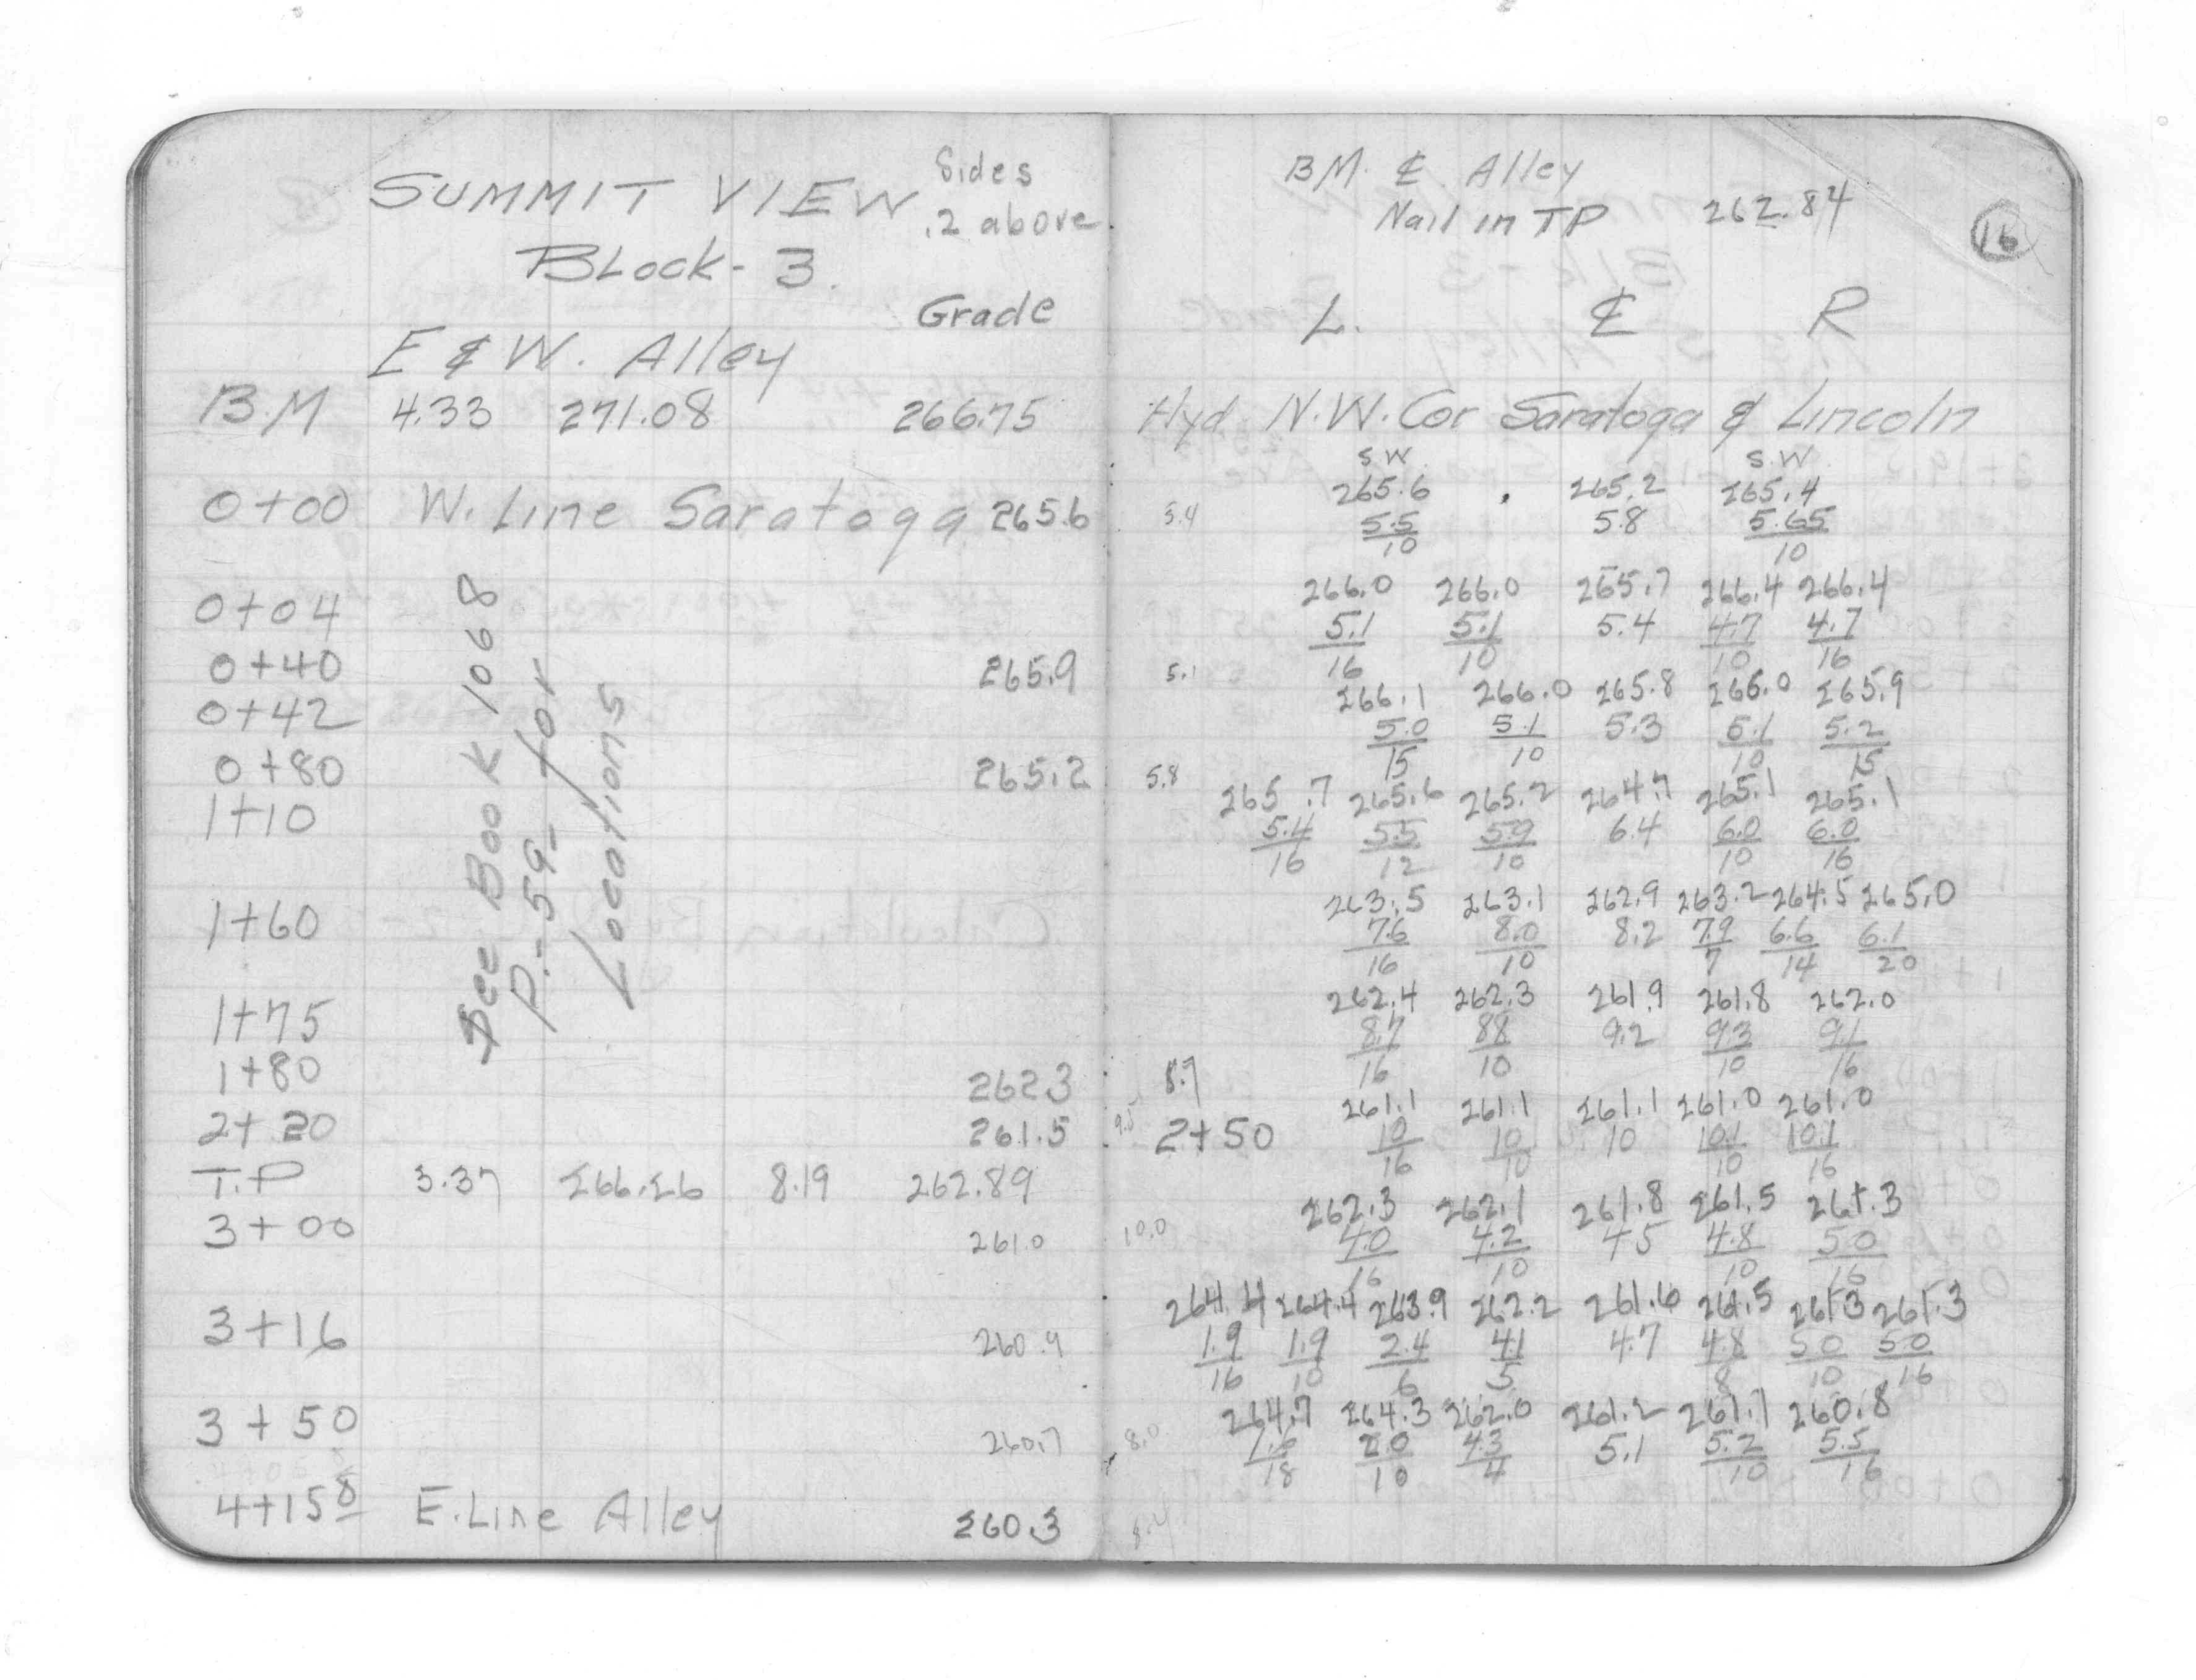 SUMMIT VIEW Sides
.2 above
BLOCK - 3.
Grade
E & W. Alley
B.M 4.33 271.08 266.75
0+00 W. Line Saratoga 265.6
0+04
0+40 265.9
0+42
0+80 265.2
1+10
1+60
1+75
1+80 262.3
2+20 261.5
T.P 3.37 266.26 8.19 262.89
3+00 261.0
3+16 260.9
3+50 260.7
4+15 8 E. Line Alley 260.3
See Book 1068
P.-59- for
Locations
BM. ℄ Alley
Nail in TP 262.84
16
L. ℄ R
Hyd. N.W. Cor Saratoga & Lincoln
S.W. S.W
265.6 265.2 265.4
5.4 5.5 5.8 5.65
10 10
266.0 266.0 265.7 266.4 266.4
5.1 5.1 5.4 4.7 4.7
16 10 10 16
5.1
266.1 266.0 265.8 266.0 265.9
5.0 5.1 5.3 5.1 5.2
15 10 10 15
5.8
265.7 265.6 265.2 264.7 265.1 265.1
5.4 5.5 5.9 6.4 6.0 6.0
16 12 10 10 16
263.5 263.1 262.9 263.2 264.5 265.0
7.6 8.0 8.2 7.9 6.6 6.1
16 10 7 14 20
262.4 262.3 261.9 261.8 262.0
8.7 8.8 9.2 9.3 9.1
16 10 10 16
8.7
261.1 261.1 261.1 261.0 261.0
9.5 2+50 10 10 10 10.1 10.1
16 10 10 16
262.3 262.1 261.8 261.5 261.3
10.0 4.0 4.2 4.5 4.8 5.0
16 10 10 16
264.4 264.4 263.9 262.2 261.6 261.5 261.3 261.3
1.9 1.9 2.4 4.1 4.7 4.8 5.0 5.0
16 10 6 5 8 10 16
264.7 264.3 262.0 261.2 261.1 260.8
8.0 1.6 2.0 4.3 5.1 5.2 5.5
18 10 4 10 16
8.4